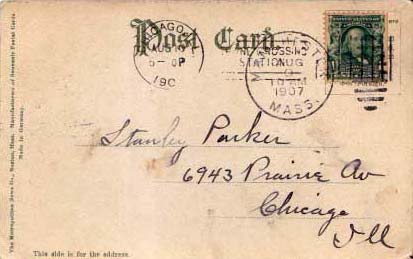 Post Card.
CHICAGO
AUG
5-30P
190
CROSSING
STATION
AUG
10 AM
1907
MASS.
Stanley Parker
6943 Prairie Av
Chicago
Ill
The Metropolitan News Co., Boston, Mass. Manufacturers of Souvenir Postal Cards.
Made in Germany.
This side is for the address.